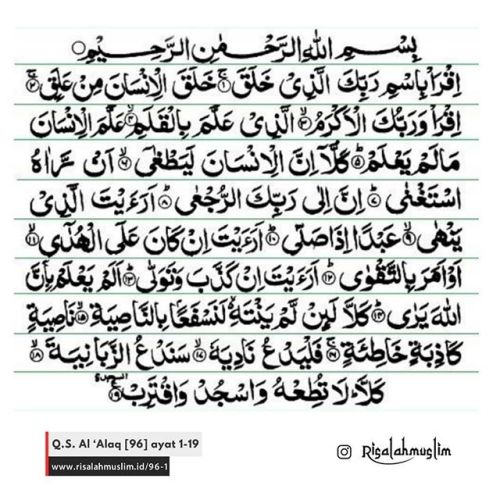 بِسْمِ اللهِ الرَّحْمٰنِ الرَّحِيْمِ
اِقْرَأْ بِاسْمِ رَبِّكَ الَّذِيْ خَلَقَ ۝١ خَلَقَ الْاِنْسَانَ مِنْ عَلَقٍ ۝٢
اِقْرَأْ وَرَبُّكَ الْاَكْرَمُ ۝٣ الَّذِيْ عَلَّمَ بِالْقَلَمِ ۝٤ عَلَّمَ الْاِنْسَانَ
مَا لَمْ يَعْلَمْ ۝٥ كَلَّآ اِنَّ الْاِنْسَانَ لَيَطْغٰى ۝٦ اَنْ رَّاٰهُ
اسْتَغْنٰى ۝٧ اِنَّ اِلٰى رَبِّكَ الرُّجْعٰى ۝٨ اَرَءَيْتَ الَّذِيْ
يَنْهٰى ۝٩ عَبْدًا اِذَا صَلّٰى ۝١٠ اَرَءَيْتَ اِنْ كَانَ عَلَى الْهُدٰٓى ۝١١
اَوْ اَمَرَ بِالتَّقْوٰى ۝١٢ اَرَءَيْتَ اِنْ كَذَّبَ وَتَوَلّٰى ۝١٣ اَلَمْ يَعْلَمْ بِاَنَّ
اللهَ يَرٰى ۝١٤ كَلَّا لَئِنْ لَّمْ يَنْتَهِ لَنَسْفَعًا بِالنَّاصِيَةِ ۝١٥ نَاصِيَةٍ
كَاذِبَةٍ خَاطِئَةٍ ۝١٦ فَلْيَدْعُ نَادِيَهٗ ۝١٧ سَنَدْعُ الزَّبَانِيَةَ ۝١٨
كَلَّا لَا تُطِعْهُ وَاسْجُدْ وَاقْتَرِبْ ۝١٩ السجدة
Q.S. Al ‘Alaq [96] ayat 1-19
www.risalahmuslim.id/96-1
Risalahmuslim